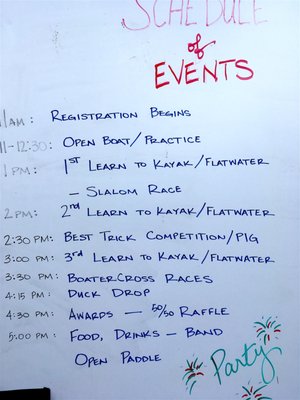 SCHEDULE
of
EVENTS
11AM: REGISTRATION BEGINS
11-12:30: OPEN BOAT/PRACTICE
1PM: 1st LEARN TO KAYAK/FLATWATER
- SLALOM RACE
2PM: 2nd LEARN TO KAYAK/FLATWATER
2:30 PM: BEST TRICK COMPETITION/PIG
3:00 PM: 3rd LEARN TO KAYAK/FLATWATER
3:30 PM: BOATERCROSS RACES
4:15 PM: DUCK DROP
4:30 PM: AWARDS — 50/50 RAFFLE
5:00 PM: FOOD, DRINKS - BAND
OPEN PADDLE
Party